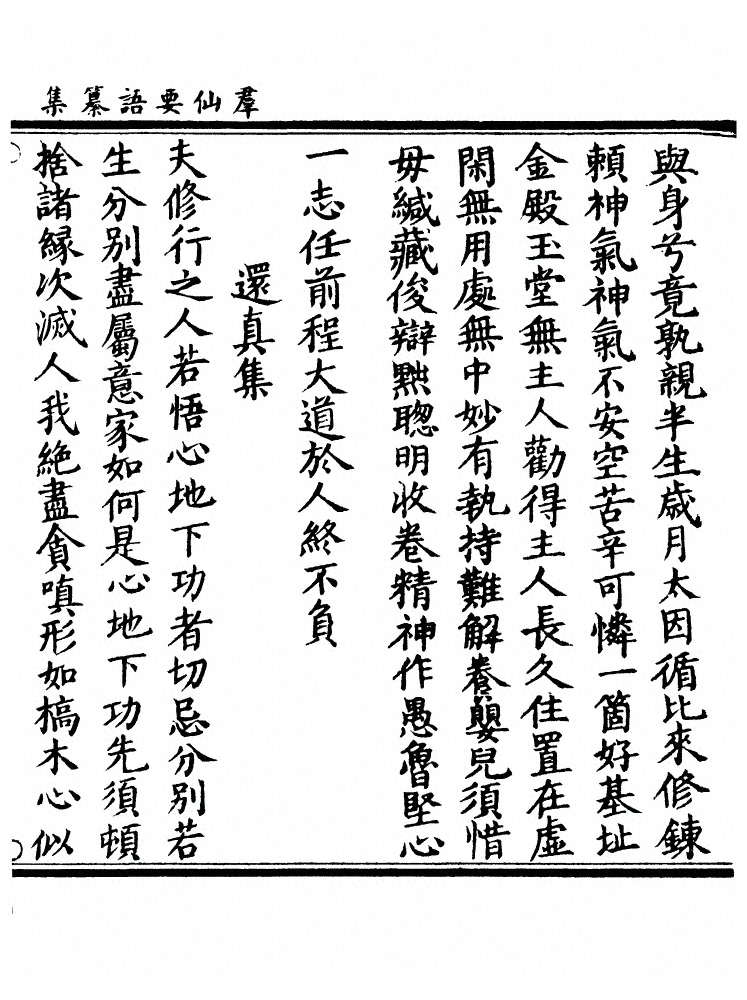 羣仙要語纂集
與身兮竟孰親半生歲月太因循比來修鍊
頼神氣神氣不安空苦辛可憐一箇好基址
金殿玉堂無主人勸得主人長久住置在虛
閑無用處無中妙有執持難解養嬰兒須惜
毋緘藏俊辯黜聰明收卷精神作愚魯堅心
一志任前程大道於人終不負
還真集
夫修行之人若悟心地下功者切忌分别若
生分别盡屬意家如何是心地下功先須頓
捨諸縁次滅人我絶盡貪嗔形如槁木心似